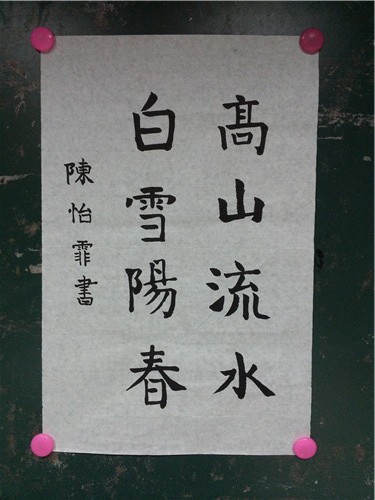 髙山流水
白雪陽春
陳怡霏書